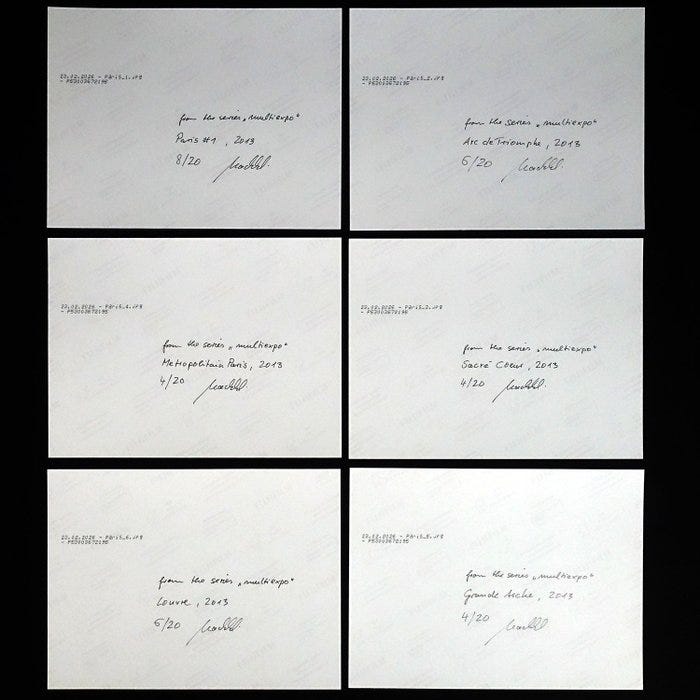 23.02.2026 - Paris_1.jpg
- P53003672195
from the series „multiexpo“
Paris #1, 2013
8/20
23.02.2026 - Paris_2.jpg
- P53003672195
from the series „multiexpo“
Arc de Triomphe, 2013
6/20
23.02.2026 - Paris_4.jpg
- P53003672195
from the series „multiexpo“
Metropolitain Paris, 2013
4/20
23.02.2026 - Paris_3.jpg
- P53003672195
from the series „multiexpo“
Sacré Coeur, 2013
4/20
23.02.2026 - Paris_6.jpg
- P53003672195
from the series „multiexpo“
Louvre, 2013
5/20
23.02.2026 - Paris_5.jpg
- P53003672195
from the series „multiexpo“
Grande Arche, 2013
4/20